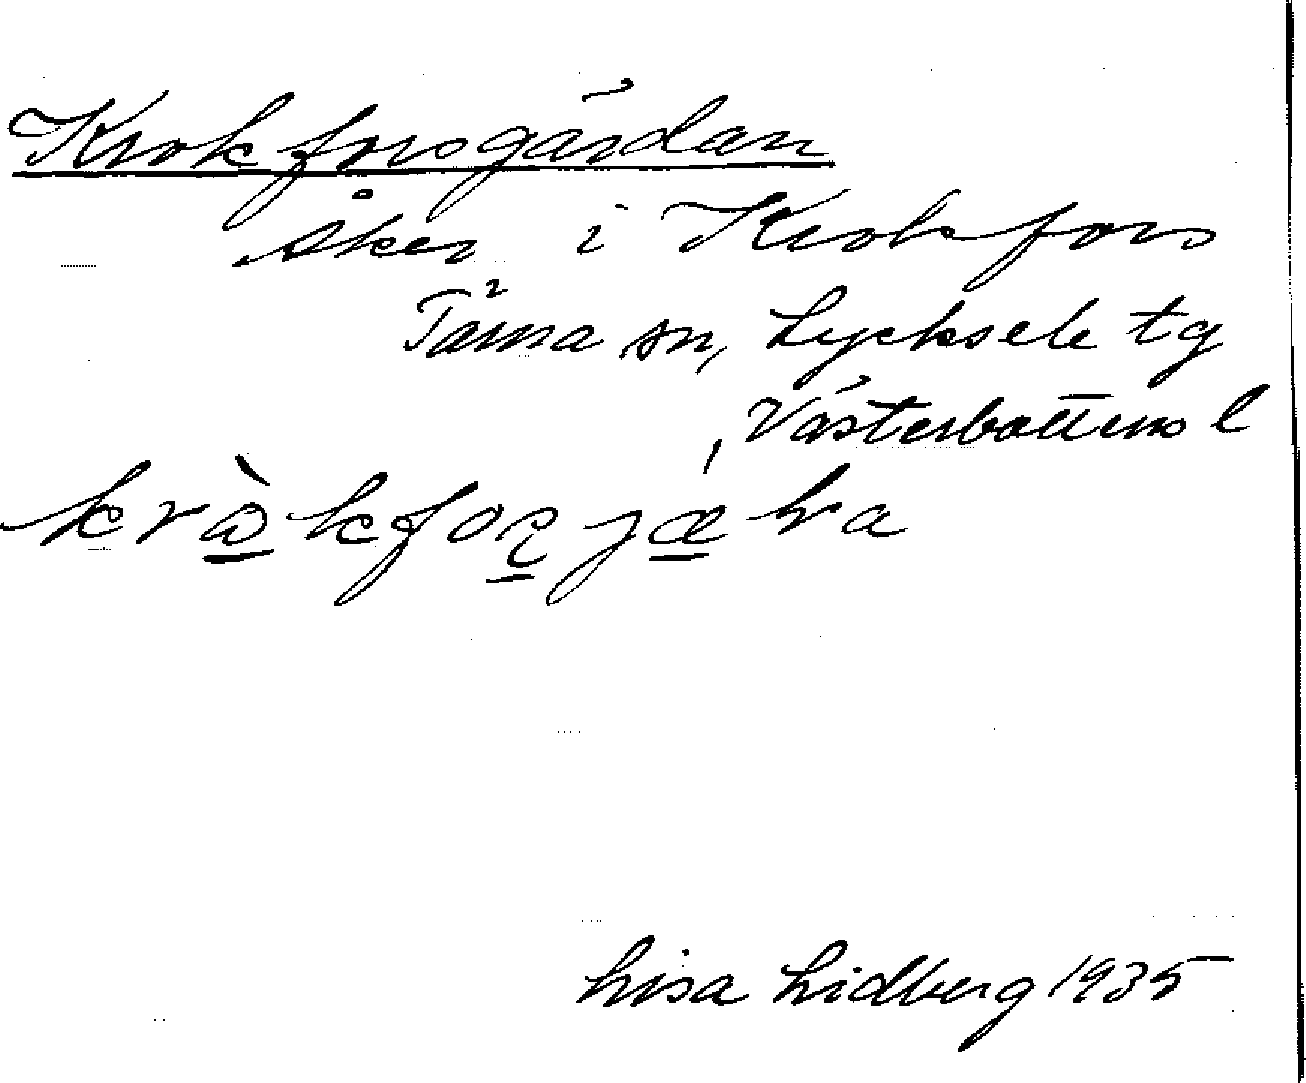 Krokforsgärdan
Åker i Krokfors
Tärna sn, Lycksele tg
Västerbottens l
Lisa Lidberg 1935